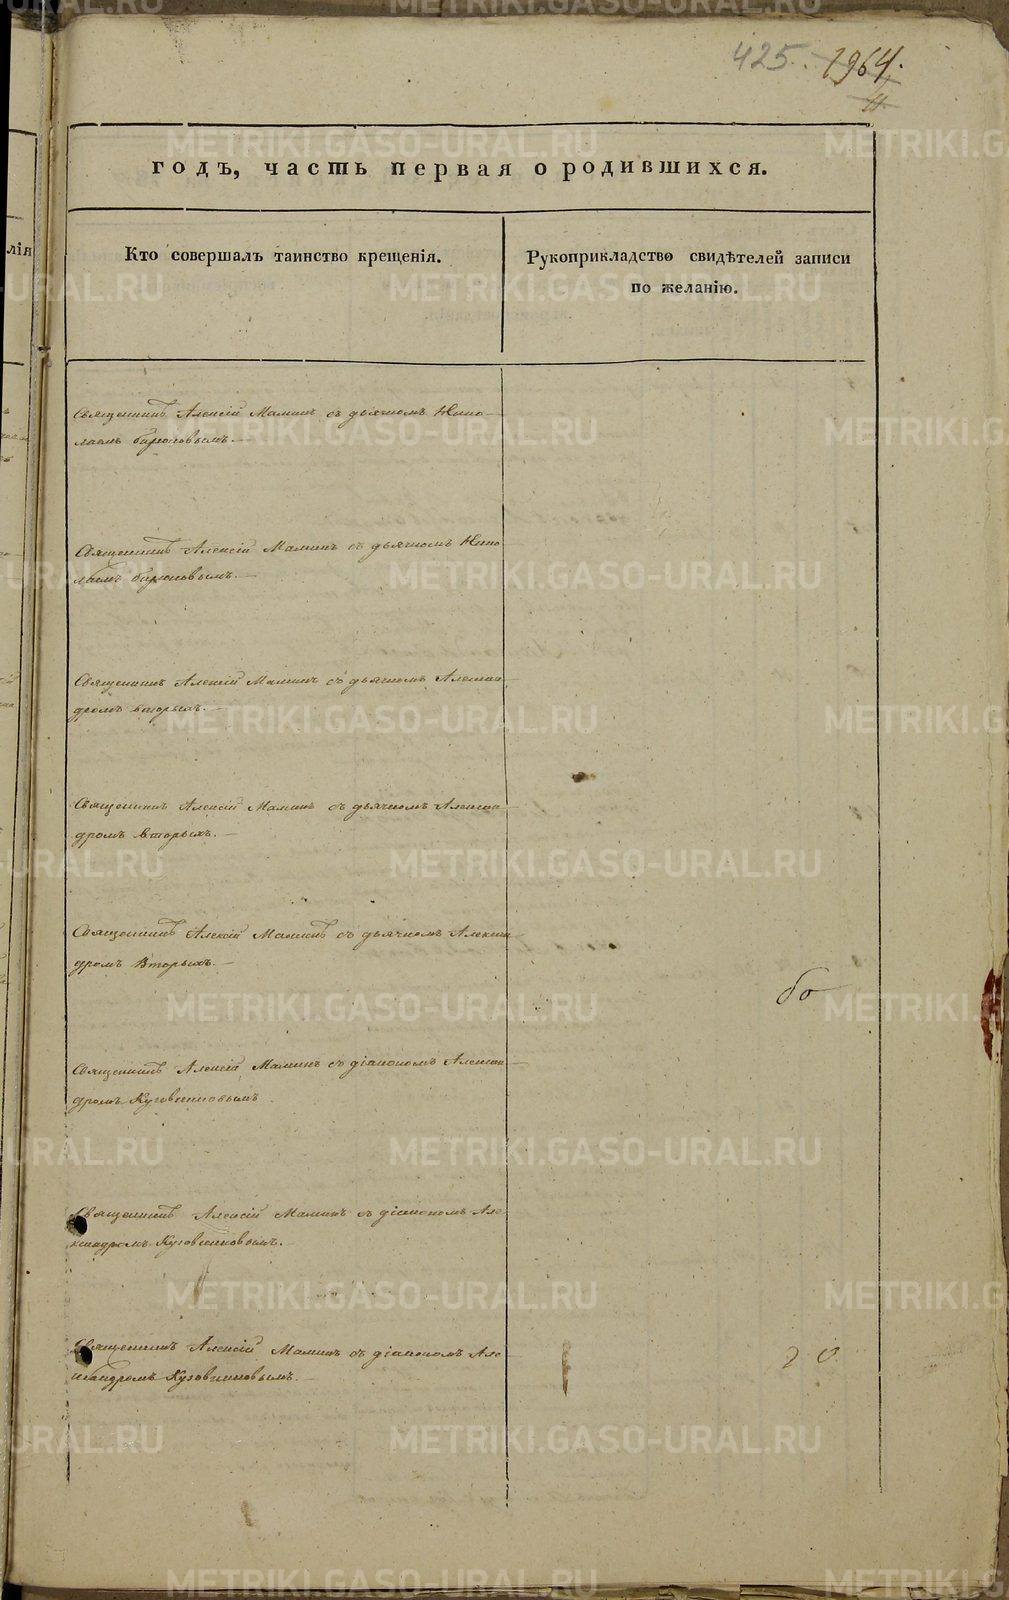 425. 1964.
годъ, часть первая о родившихся.
лія
Кто совершалъ таинство крещенія.
Рукоприкладство свидѣтелей записи
по желанію.
Священникъ Алексій Маминъ съ дьячкомъ Нико-
лаемъ Бирюковымъ.
Священникъ Алексій Маминъ съ дьячкомъ Нико
лаемъ Бирюковымъ.
Священникъ Алексій Маминъ съ дьячкомъ Алексан
дромъ Вторыхъ.
Священникъ Алексій Маминъ съ дьячкомъ Алексан
дромъ Вторыхъ.
Священникъ Алексій Маминъ съ дьячкомъ Алексан
дромъ Вторыхъ.
Священникъ Алексій Маминъ съ діакономъ Алексан
дромъ Кузовниковымъ
Священникъ Алексій Маминъ съ діакономъ Але
ксандромъ Кузовниковымъ.
Священникъ Алексій Маминъ съ діакономъ Але
ксандромъ Кузовниковымъ.
METRIKI.GASO-URAL.RU